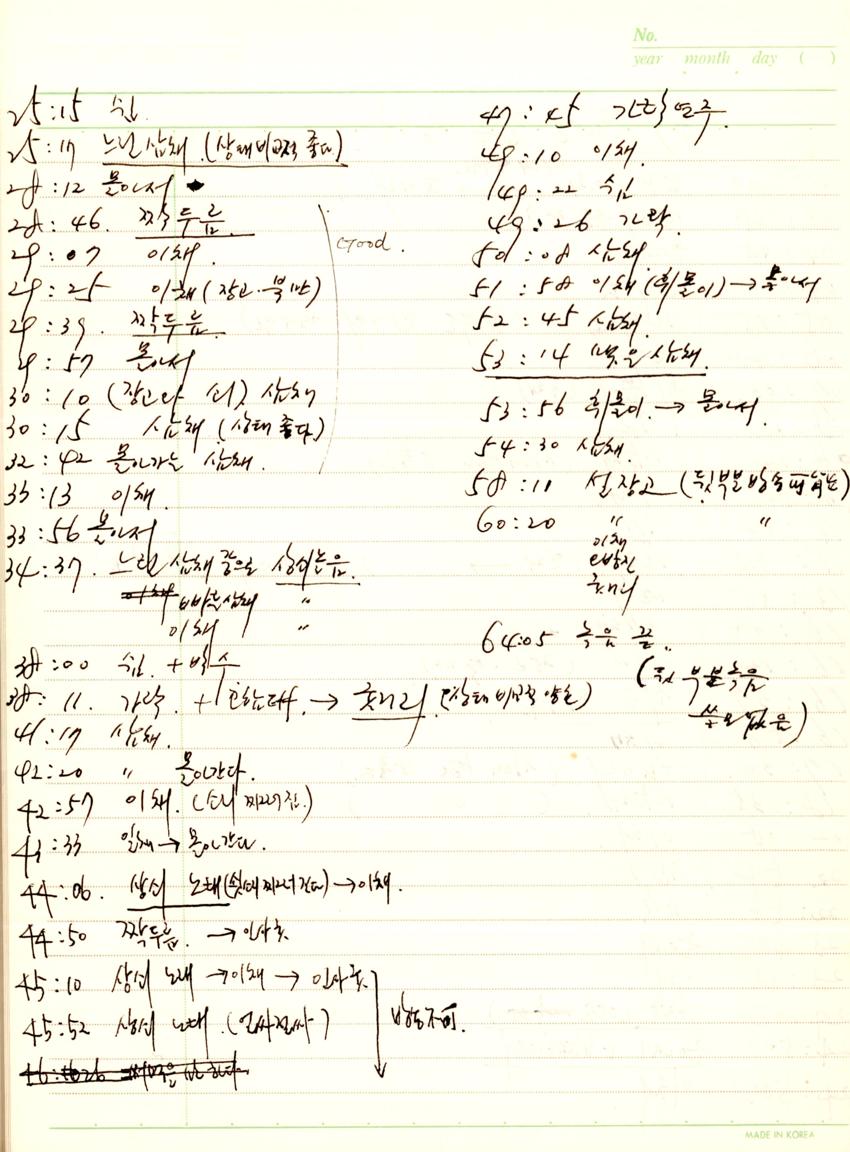 No.
year month day ( )
25:15 쉼.
25:17 느린삼채 (상태비교적 좋다)
28:12 몰아서
28:46. 짝두름.
29:07 이채.
29:25 이채 (장고·북만)
29:39. 짝두름.
29:57 몰아서
30:10 (장고와 쇠) 삼채
30:15 삼채 (상태좋다)
Good.
32:42 몰아가는 삼채.
33:13 이채.
33:56 몰아서
34:37. 느린 삼채 상쇠놀음.
이채 빠른삼채 〃
이채 〃
38:00 쉼. + 박수
38:11. 가락. + → (상태 비교적 양호)
41:17 삼채.
42:20 〃 몰아간다.
42:57 이채. (소리 찌그러짐.)
43:33 일채 → 몰아간다.
44:06. 상쇠 노래 → 이채.
44:50 짝두름. → 인사굿
45:10 상쇠 노래 → 이채 → 인사굿
45:52 상쇠 노래. (얼싸절싸)
방송불가.
47:45 가락연주.
49:10 이채.
49:22 쉼
49:26 가락.
50:08 삼채.
51:58 이채 (휘몰이) → 몰아서
52:45 삼채.
53:14 맺은삼채.
53:56 휘몰이. → 몰아서.
54:30 삼채.
58:11 설장고 (뒷부분방송
60:20 〃 〃
이채
64:05 녹음 끝..
(뒷부분녹음
필요없음)
MADE IN KOREA